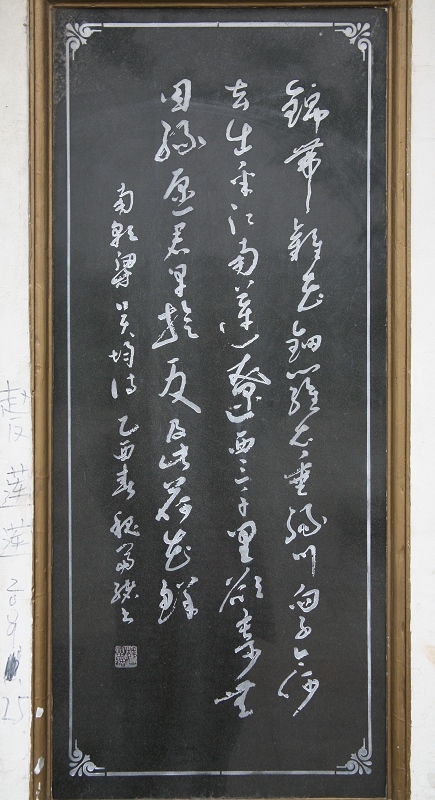 錦帶雜花鈿羅衣垂綠川問子今何
去出采江南蓮遼西三千里欲寄無
因緣愿君早旋反及此荷花鮮
南朝梁吴均诗乙酉春
莲莲
25